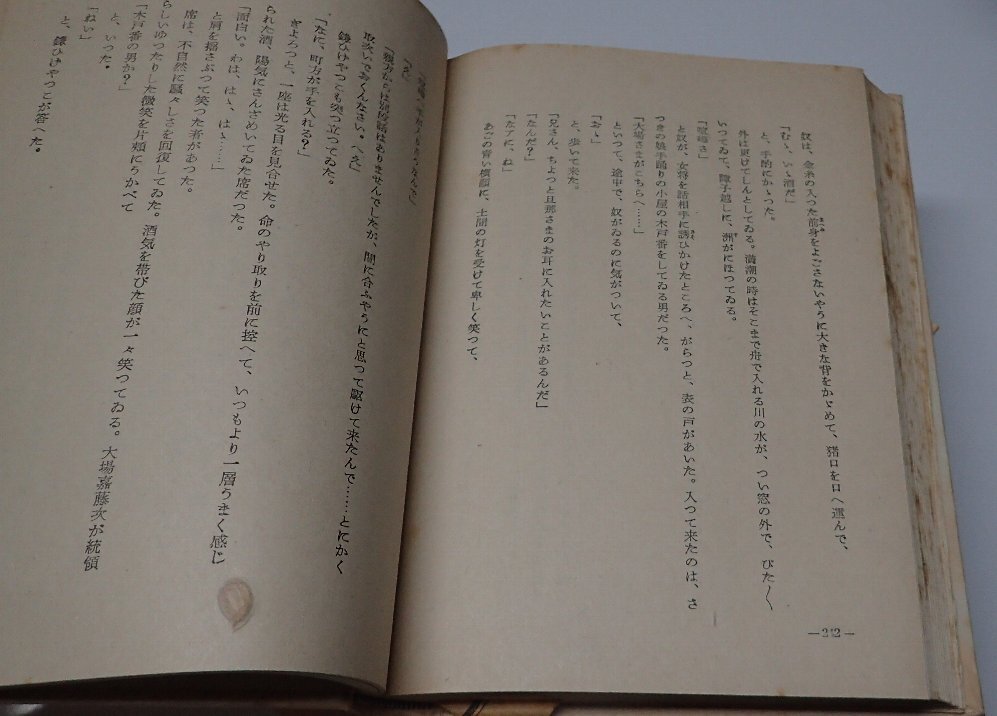 奴は、金糸の入つた前身をよごさないやうに大きな背をかゞめて、猪口を口へ運んで、
「むゝ、いゝ酒だ」
と、手酌にかゝつた。
外は更けてしんとしてゐる。満潮の時はそこまで舟で入れる川の水が、つい窓の外で、ぴた〱
いつてゐて、障子越しに、潮がにほつてゐる。
「喧嘩さ」
と奴が、女将を話相手に誘ひかけたところへ、がらつと、表の戸があいた。入つて来たのは、さ
つきの娘手踊りの小屋の木戸番をしてゐる男だつた。
「大場さまがこちらへ……」
といつて、途中で、奴がゐるのに気がついて、
「おゝ」
と、歩いて来た。
「兄さん、ちよつと旦那さまのお耳に入れたいことがあるんだ」
「なんだ？」
「なアに、ね」
あごの青い横顔に、土間の灯を受けて卑しく笑つて、
—242—
「え」
「親方からは別段話はありませんでしたが、間に合ふやうにと思つて駆けて来たんで……とにかく
取次いでおくんなさい。へえ」
鎌ひげやつても突つ立つてゐた。
「なに、町方が手を入れる？」
ぎよろつと、一座は光る目を見合せた。命のやり取りを前に控へて、いつもより一層うまく感じ
られた酒、陽気にさんざめいてゐた席だつた。
「面白い。わは、はゝ、はゝ……」
と肩を揺さぶつて笑つた者があつた。
席は、不自然に騒々しさを回復してゐた。酒気を帯びた顔が一々笑つてゐる。大場嘉藤次が統領
らしいゆつたりした微笑を片頬にうかべて
「木戸番の男か？」
と、いつた。
「ねい」
と、鎌ひげやつこが答へた。